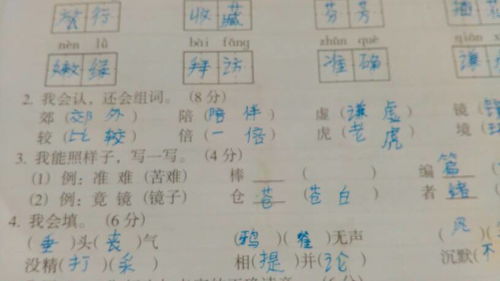 旅行 收藏 芬芳
nèn lǜ bài fǎng zhǔn què qiān
嫩绿 拜访 准确 谦
2. 我会认，还会组词。（8分）
郊（郊外） 陪（陪伴） 虚（谦虚） 镜（
较（比较） 倍（一倍） 虎（老虎） 境（
3. 我能照样子，写一写。（4分）
（1）例：准 难（苦难） 棒 （ ） 编 篇
（2）例：竟 镜（镜子） 仓 苍（苍白） 者 绪
4. 我会填。（6分）
（垂）头（丧）气 （鸦）（雀）无声
没精（打）（采） 相（提）并（论） 沉默（不